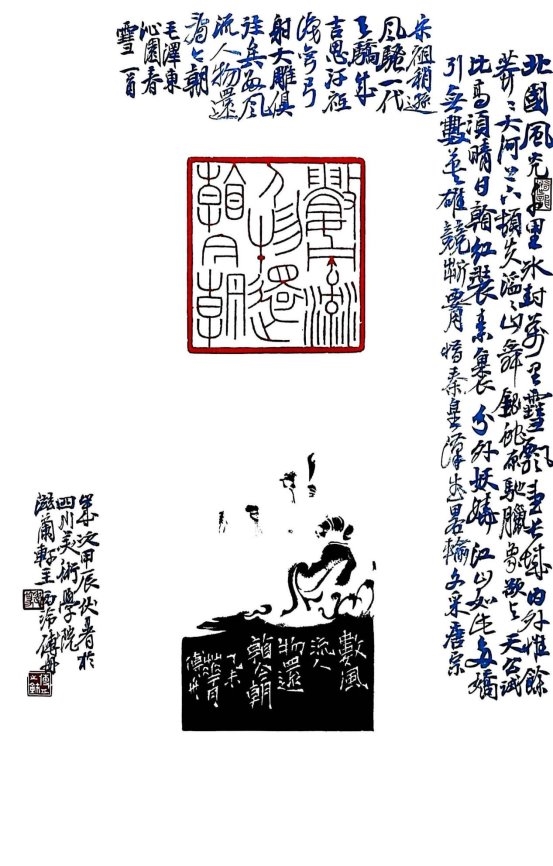 北國風光千里冰封萬里雪飄望長城內外惟餘
莽〻大河上下頓失滔〻山舞銀蛇原馳臘象欲與天公試
比高須晴日看紅裝素裹分外妖嬈江山如此多嬌
引無數英雄競折腰惜秦皇漢武略輸文采唐宗
宋祖稍遜
風騷一代
天驕成
吉思汗祇
識彎弓
射大雕俱
往矣數風
流人物還
看今朝
毛澤東
沁園春
雪一首
數風流
人物還
看今朝
數風
流人
物還
看今朝
乙未
歲次甲辰伏暑於
四川美術學院
滋蘭軒主